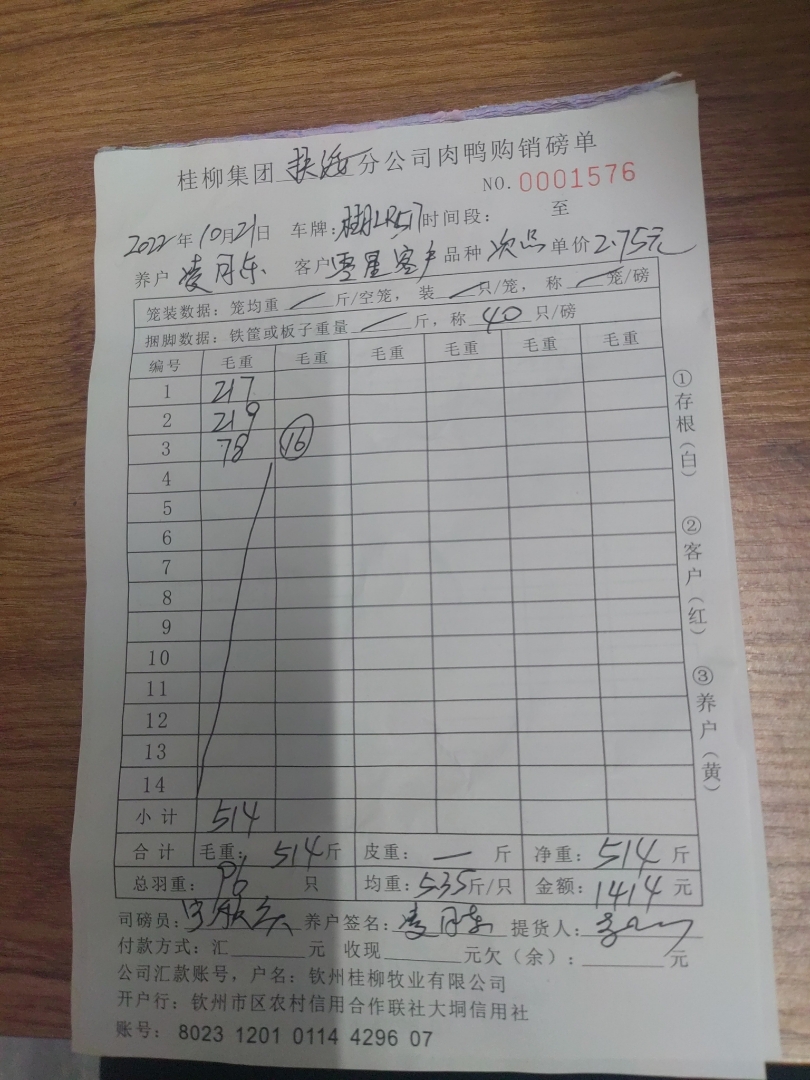 桂柳集团扶绥分公司肉鸭购销磅单
NO. 0001576
2022年10月21日 车牌: 时间段: 至
养户 凌月东 客户 零星客户 品种 次品 单价 2.75元
笼装数据: 笼均重 / 斤/空笼, 装 / 只/笼, 称 / 笼/磅
捆脚数据: 铁筐或板子重量 / 斤, 称 40 只/磅
编号 毛重 毛重 毛重 毛重 毛重 毛重
1 217
2 219
3 78 16
4
5
6
7
8
9
10
11
12
13
14
小计 514
合计 毛重: 514斤 皮重: — 斤 净重: 514 斤
总羽重: 96 只 均重: 5.35斤/只 金额: 1414 元
司磅员: 养户签名: 凌月东 提货人:
付款方式: 汇 元 收现 元欠(余): 元
公司汇款账号, 户名: 钦州桂柳牧业有限公司
开户行: 钦州市区农村信用合作联社大垌信用社
账号: 8023 1201 0114 4296 07
①存根(白)
②客户(红)
③养户(黄)